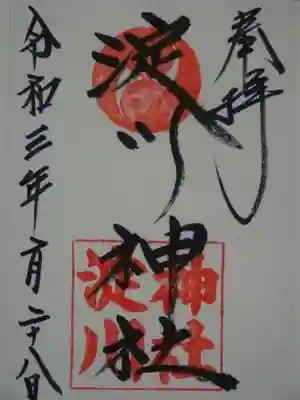 奉拝
淀川神社
神社
淀川
令和三年二月二十八日